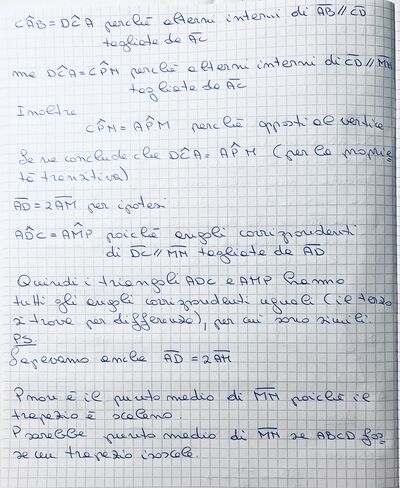 CÂB = DĈA perché alterni interni di AB // CD
tagliate da AC
ma DĈA = CP̂M perché alterni interni di CD // MN
tagliate da AC
Inoltre
CP̂N = AP̂M perché opposti al vertice
Se ne conclude che DĈA = AP̂M (per la proprie
tà transitiva)
AD = 2AM per ipotesi
AD̂C = AM̂P poiché angoli corrispondenti
di DC // MN tagliate da AD
Quindi i triangoli ADC e AMP hanno
tutti gli angoli corrispondenti uguali (il terzo
si trova per differenza), per cui sono simili.
PS.
Sapevamo anche AD = 2AM
P non è il punto medio di MN poiché il
trapezio è scaleno.
P sarebbe punto medio di MN se ABCD fos
se un trapezio isoscele.